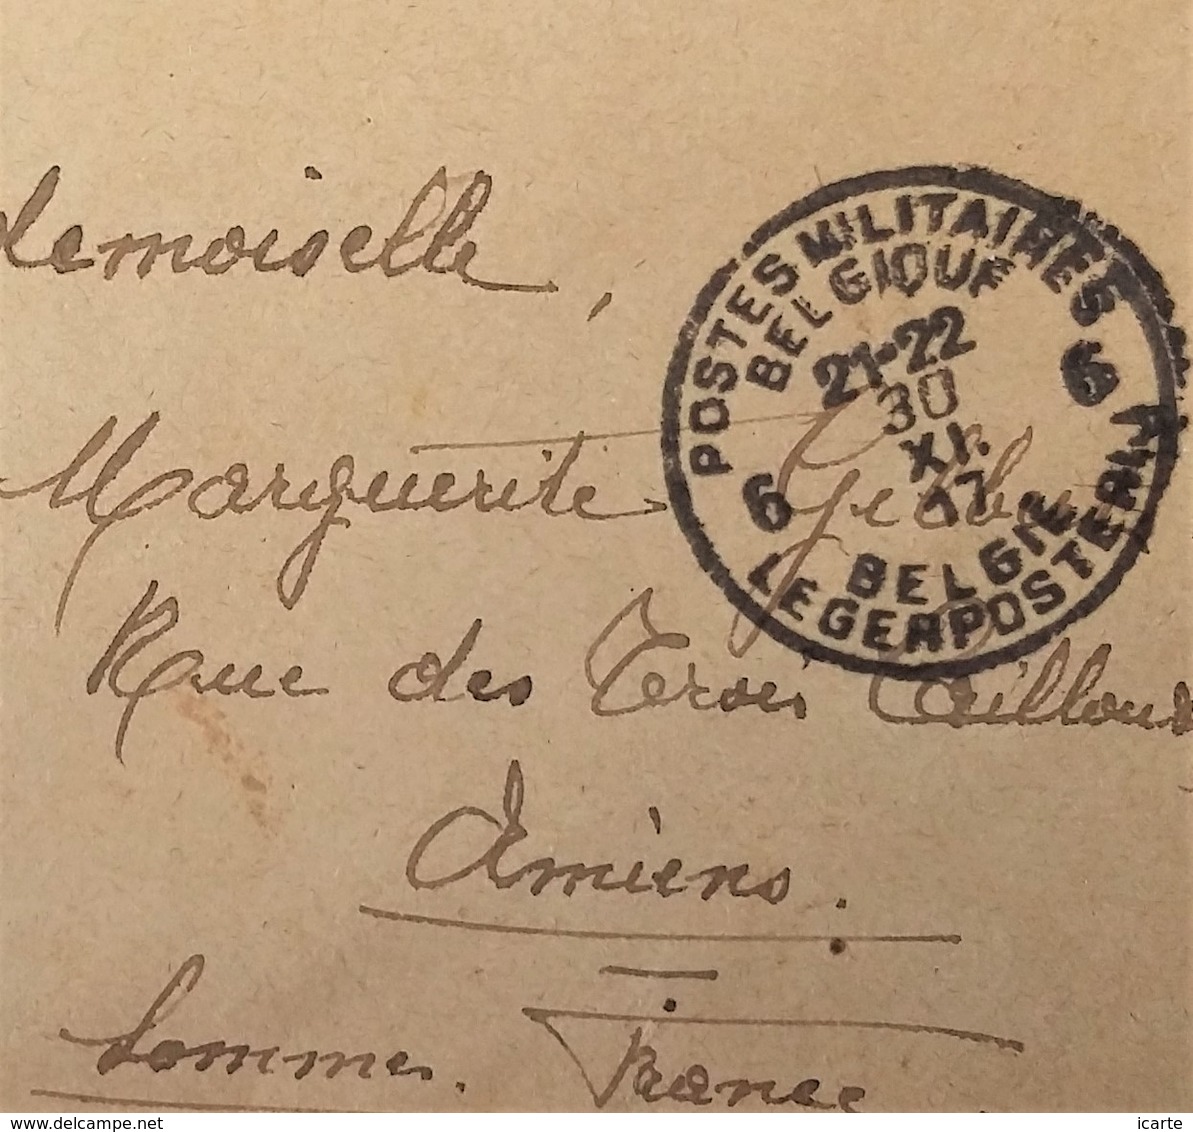 demoiselle,
Marguerite
Rue des Trois Cailloux
Amiens.
Somme. France
POSTES MILITAIRES
BELGIQUE
21-22
30
XI.
17
6 6
BELGIE
LEGERPOSTERIJ
icarte